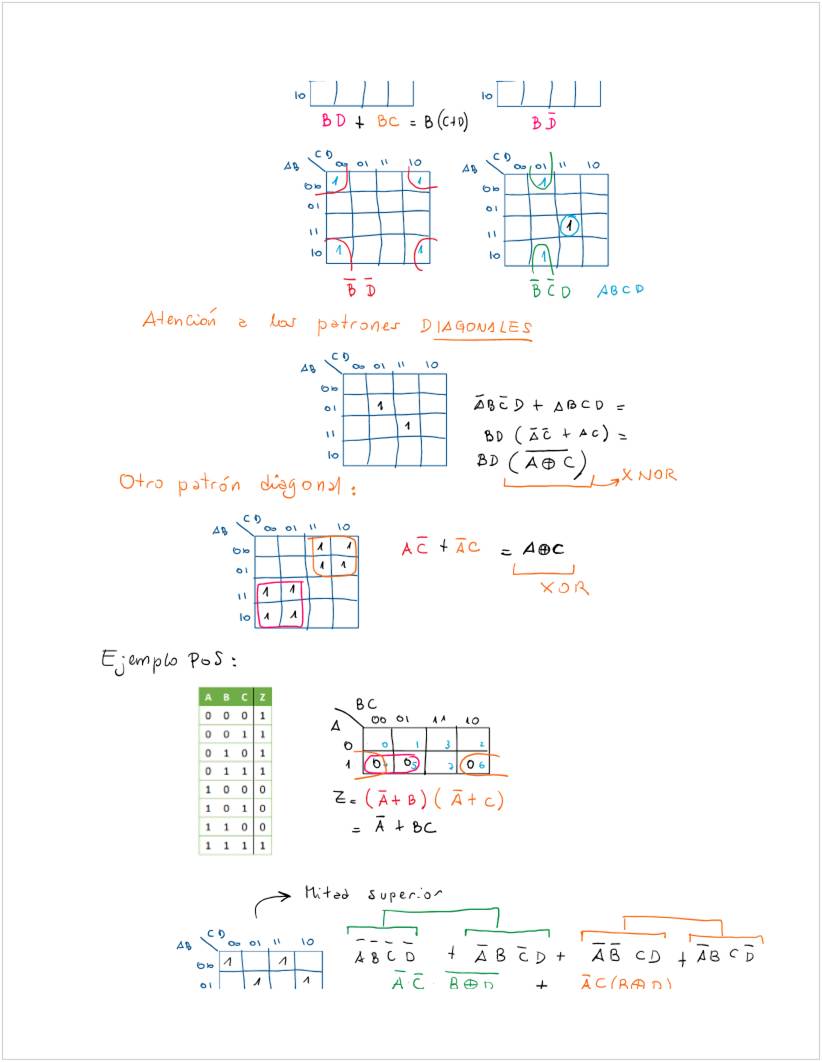 10 10
BD + BC = B(C+D) BD̅
CD CD
AB 00 01 11 10 AB 00 01 11 10
00 1 1 00 1
01 01
11 11 1
10 1 1 10 1
B̅ D̅ B̅ C̅ D ABCD
Atención a los patrones DIAGONALES
CD
AB 00 01 11 10
00
01 1
11 1
10
A̅BC̅D + ABCD =
BD (A̅C̅ + AC) =
BD (A̅ ̅⊕̅ ̅C̅) → XNOR
Otro patrón diagonal:
CD
AB 00 01 11 10
00 1 1
01 1 1
11 1 1
10 1 1
AC̅ + A̅C = A⊕C
XOR
Ejemplo PoS:
A B C Z
0 0 0 1
0 0 1 1
0 1 0 1
0 1 1 1
1 0 0 0
1 0 1 0
1 1 0 0
1 1 1 1
BC
A 00 01 11 10
0 0 1 3 2
1 0 0 5 7 0 6
Z = (A̅ + B) (A̅ + C)
= A̅ + BC
→ Mitad superior
CD
AB 00 01 11 10
00 1 1
01 1 1
A̅ B̅ C̅ D̅ + A̅ B C̅ D + A̅ B̅ C D + A̅ B C D̅
A̅ C̅ · B̅ ̅⊕̅ ̅D̅ + A̅C(B⊕D)